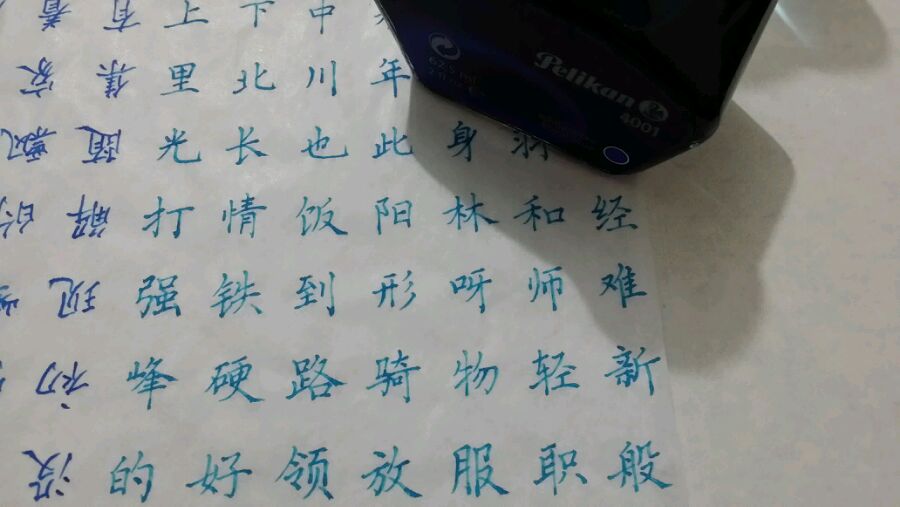 着 有 上 下 中
家 集 里 北 川 年
飘 首 光 长 也 此 身
的 解 打 情 饭 阳 林 和 经
现 强 铁 到 形 呀 师 难
初 峰 硬 路 骑 物 轻 新
没 的 好 领 放 服 职 般
Pelikan
4001
62.5 ml